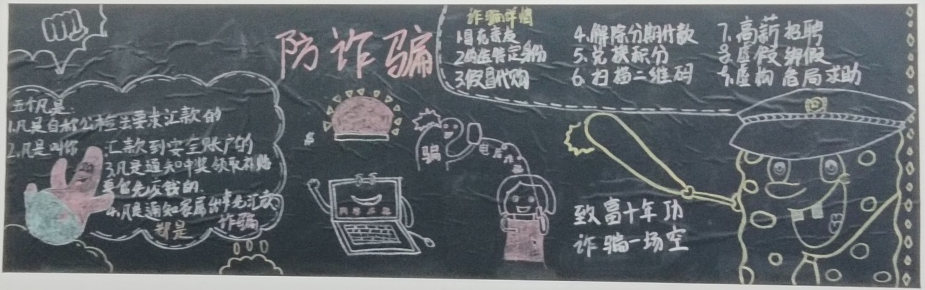 防诈骗
诈骗详情
1.冒充亲友
3.假冒代购
4.解除分期付款
5.兑换积分
6.扫描二维码
7.高薪招聘
9.虚构危局求助
五个凡是:
1.凡是自称公检法要求汇款的
2.凡是叫你
汇款到安全账户的
3.凡是通知中奖领取补贴
要你先交钱的
4.凡是通知家属出事先汇款
都是 诈骗
骗
电话
致富十年功
诈骗一场空